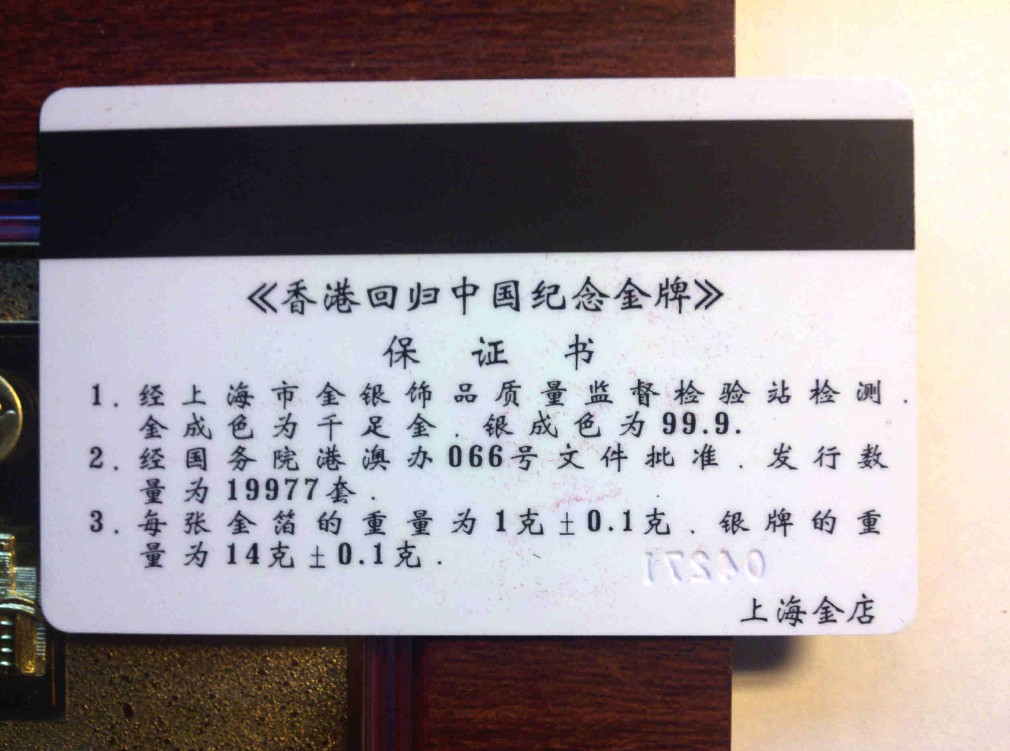 《香港回归中国纪念金牌》
保 证 书
1. 经上海市金银饰品质量监督检验站检测.
金成色为千足金.银成色为99.9.
2. 经国务院港澳办066号文件批准.发行数
量为19977套.
3. 每张金箔的重量为1克±0.1克.银牌的重
量为14克±0.1克.
04271
上海金店